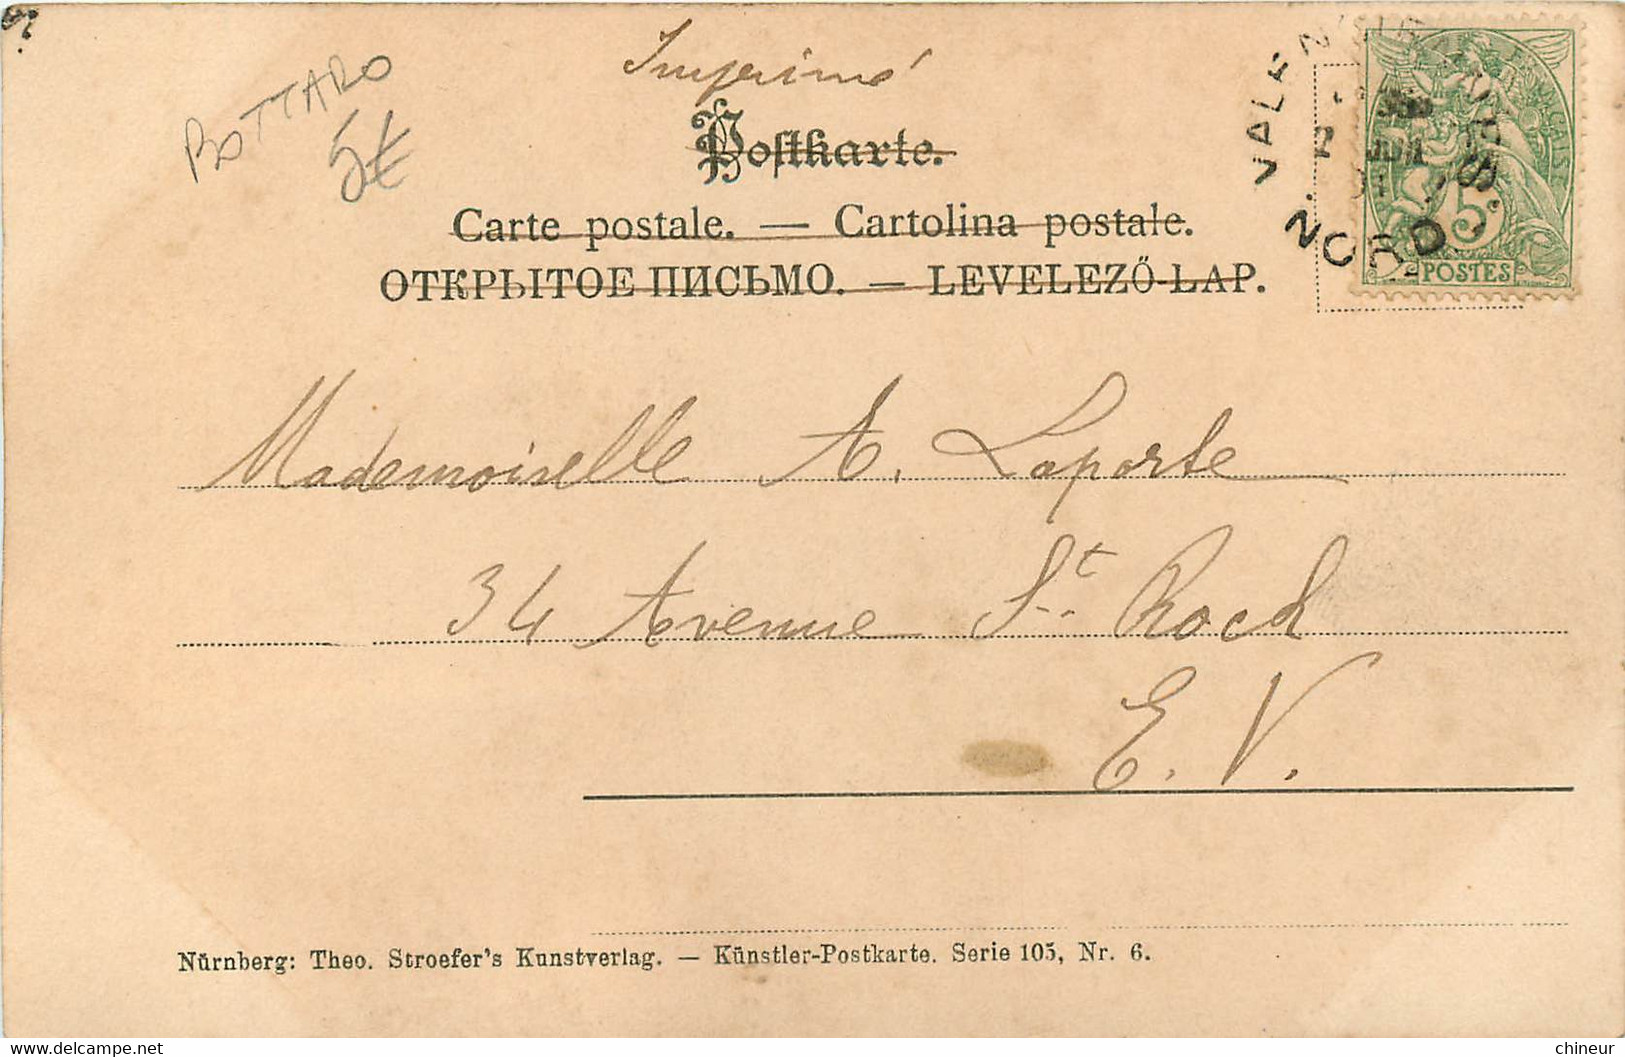 Imprimé
BOTTARO
5€
Postkarte.
Carte postale. — Cartolina postale.
ОТКРЫТОЕ ПИСЬМО. — LEVELEZŐ-LAP.
VALENCIENNES
NORD
FRANÇAISE
5
POSTES
Mademoiselle A. Laporte
34 Avenue St Roch
E. V.
Nürnberg: Theo. Stroefer's Kunstverlag. — Künstler-Postkarte. Serie 105, Nr. 6.
chineur